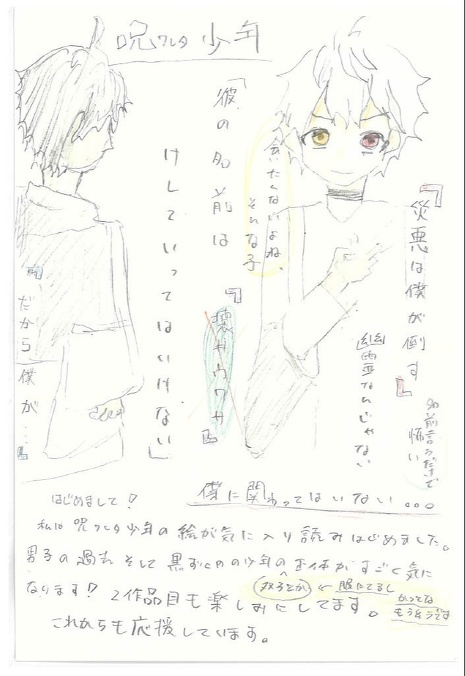 呪ワレタ少年
『災悪は僕が倒す』
名前言うだけで
怖い
幽霊なんじゃない
会いたくないよね、
そんな子
「彼の名前は
『壊井ウワサ』
けしていってはいけない」
『だから僕が…』
僕に関わってはいけない…
はじめまして!
私は呪ワレタ少年の絵が気に入り読みはじめました。
男子の過去そして黒ずくめの少年の正体がすごく気に
なります? 2作品目も楽しみにしてます。
これからも応援しています。